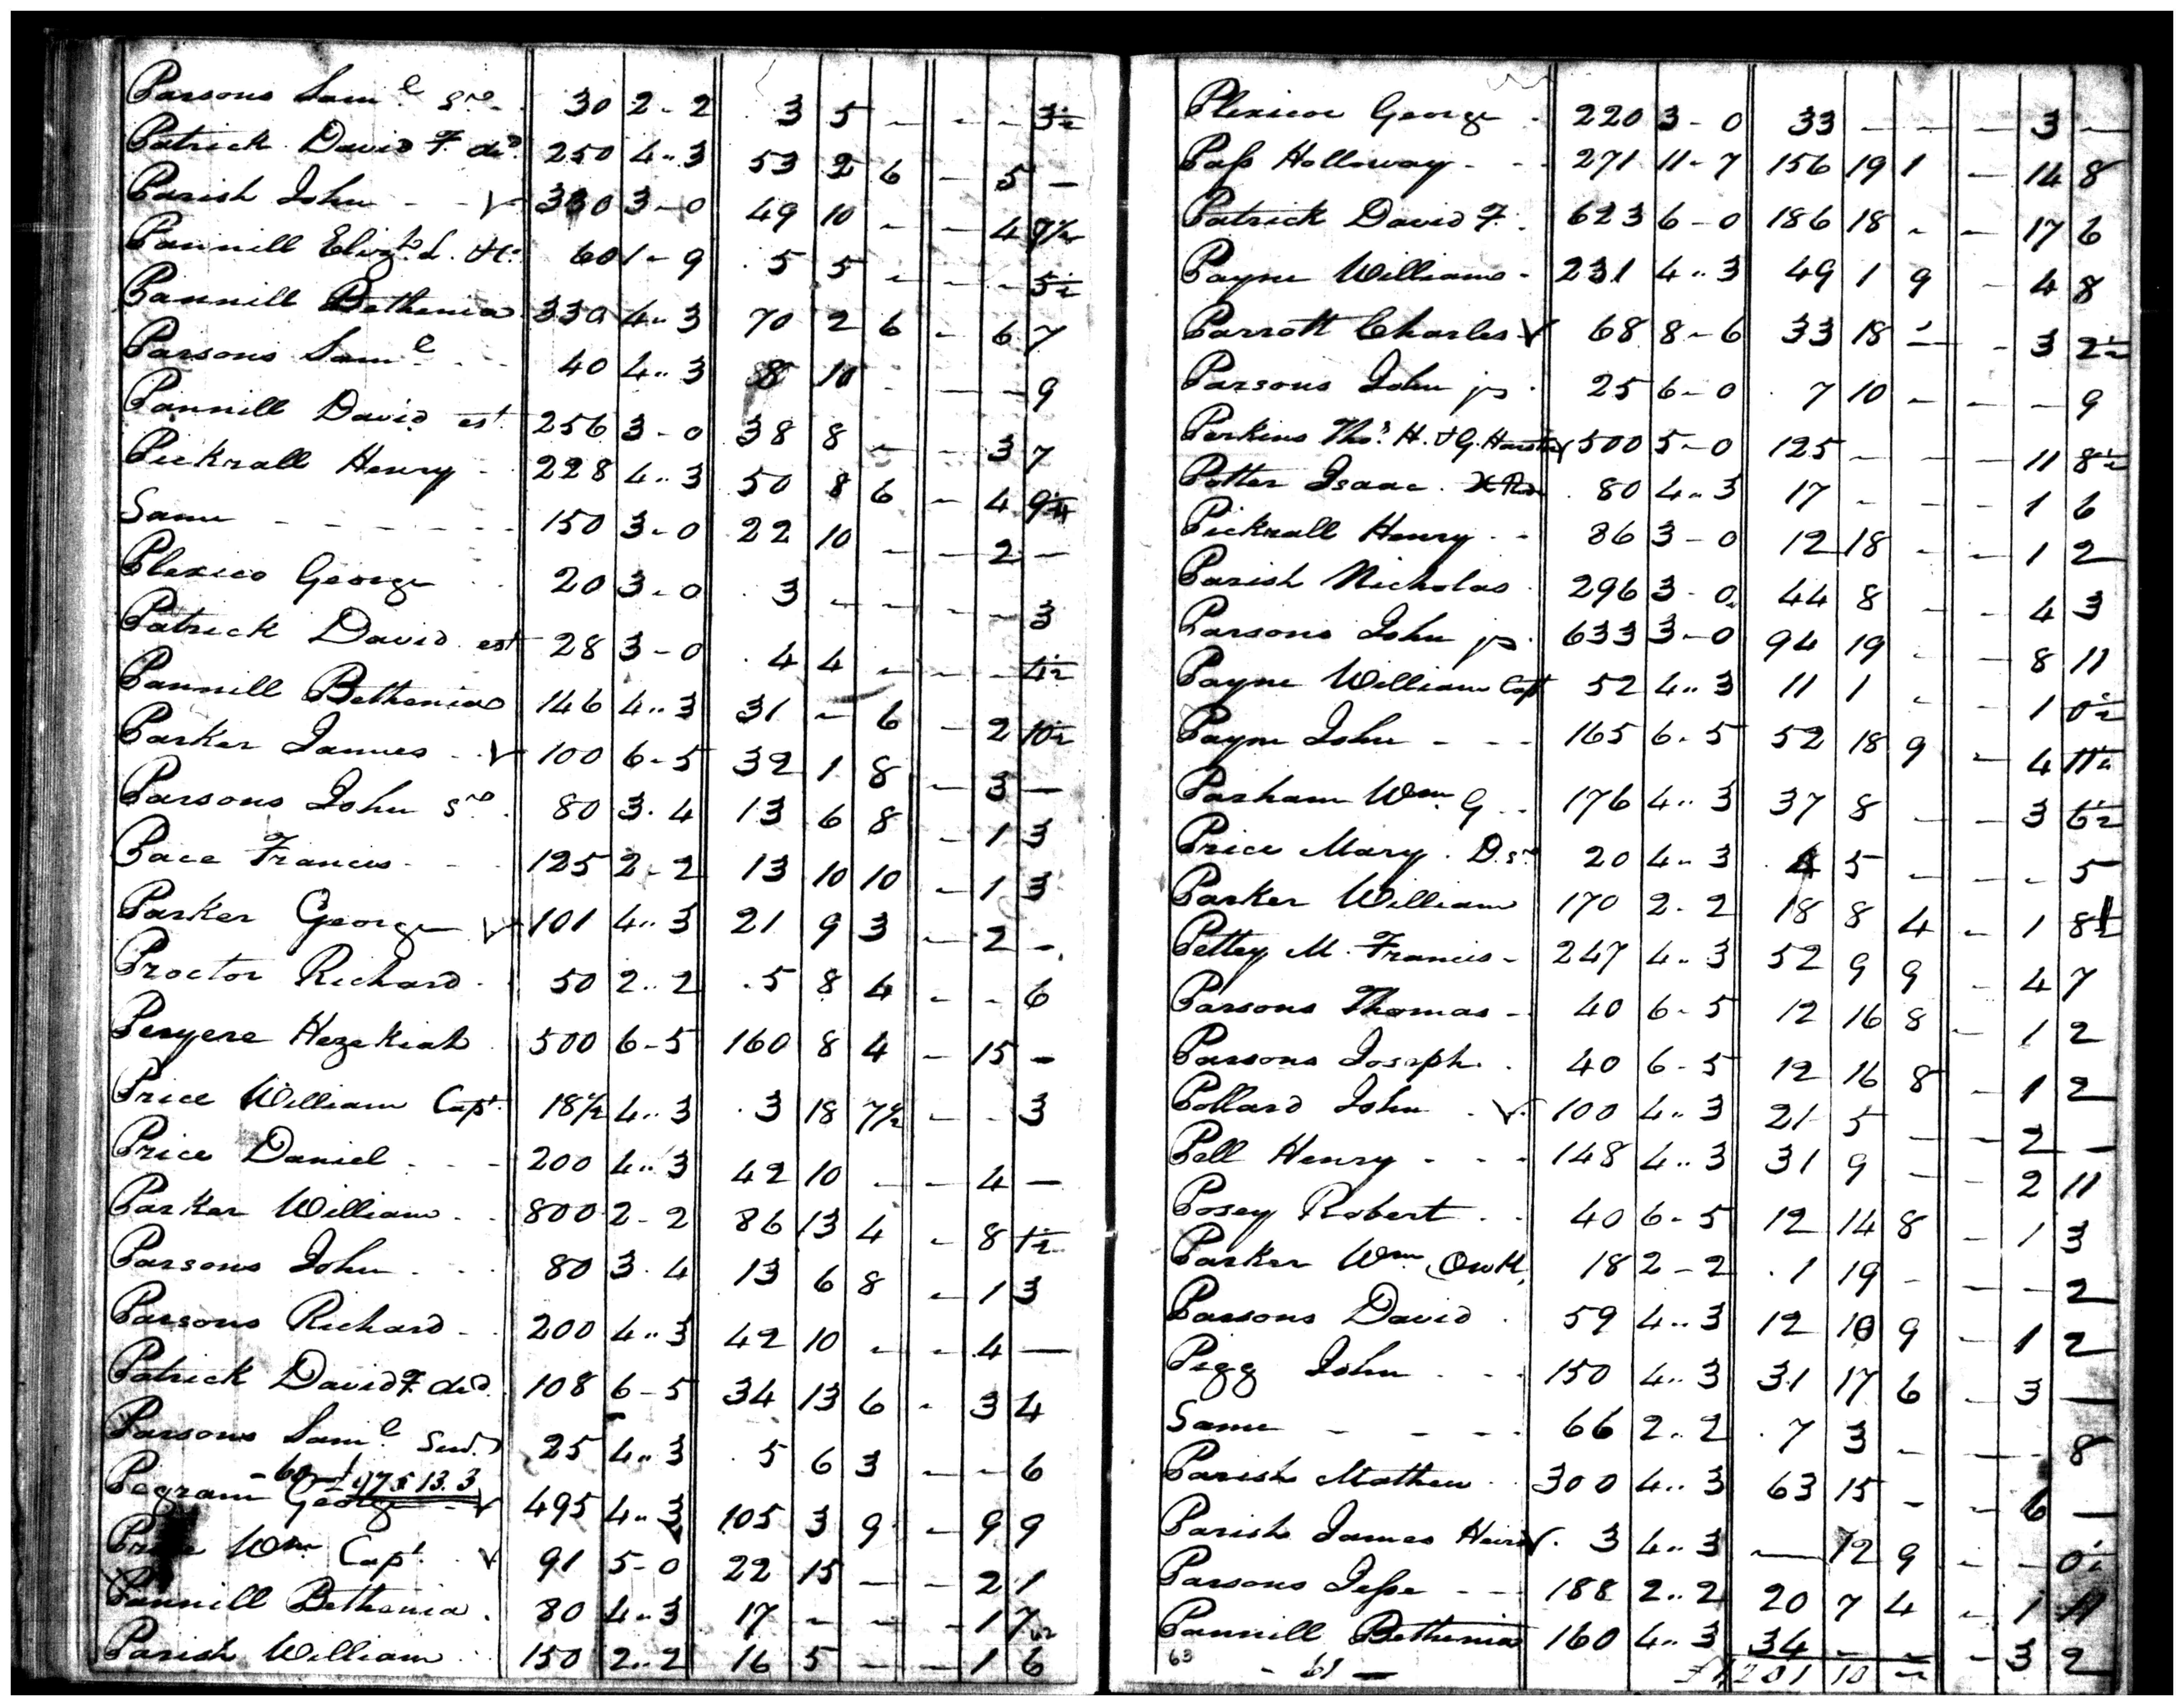 Parsons Saml Sre. 30 2-2 3 5 - - - 3½
Patrick David F. decd. 250 4..3 53 2 6 - 5 -
Parish John - - √ 330 3-0 49 10 - - 4 7½
Pannill Elizth. L. &c. 60 1-9 5 5 - - - 5½
Pannill Bethenia 330 4..3 70 2 6 - 6 7
Parsons Saml - - 40 4..3 8 10 - - - 9
Pannill David est. 256 3-0 38 8 - - 3 7
Pickrall Henry - 228 4..3 50 8 6 - 4 9¼
Same - - - - - - 150 3-0 22 10 - - 2 -
Plexico George 20 3-0 3 - - - - 3
Patrick David est 28 3-0 4 4 - - - 4½
Pannill Bethenia 146 4..3 31 - 6 - 2 10½
Parker James - √ 100 6-5 32 1 8 - 3 -
Parsons John Sre. 80 3.4 13 6 8 - 1 3
Pace Francis - - 125 2-2 13 10 10 - 1 3
Parker George √ 101 4..3 21 9 3 - 2 -
Proctor Richard - 50 2..2 5 8 4 - - 6
Peryere Hezekiah 500 6-5 160 8 4 - 15 -
Price William Capt. 18½ 4..3 3 18 7½ - - 3
Price Daniel - - - 200 4..3 42 10 - - 4 -
Parker William - - 800 2-2 86 13 4 - 8 1½
Parsons John - - 80 3.4 13 6 8 - 1 3
Parsons Richard - 200 4..3 42 10 - - 4 -
Patrick David F. decd. 108 6-5 34 13 6 - 3 4
Parsons Saml. 25 4..3 5 6 3 - - 6
£975.13.3
Pegram George - √ 495 4..3 105 3 9 - 9 9
Price Wm Capt. √ 91 5-0 22 15 - - 2 1
Pannill Bethenia - 80 4..3 17 - - - 1 7½
Parish William - - 150 2..2 16 5 - - 1 6
Plexico George - 220 3-0 33 - - - 3 -
Pass Holloway - - - 271 11-7 156 19 1 - 14 8
Patrick David F. 623 6-0 186 18 - - 17 6
Payne William - 231 4..3 49 1 9 - 4 8
Parrott Charles √ 68 8-6 33 18 - - 3 2½
Parsons John jr. 25 6-0 7 10 - - - 9
Perkins Thos. H. & G. Hairston √ 500 5-0 125 - - 11 8½
Potter Isaac 80 4..3 17 - - - 1 6
Pickrall Henry - - 86 3-0 12 18 - - 1 2
Parish Nicholas - 296 3-0 44 8 - - 4 3
Parsons John jr. 633 3-0 94 19 - - 8 11
Payne William Capt 52 4..3 11 1 - - 1 0½
Payne John - - - 165 6-5 52 18 9 - 4 11½
Parham Wm G - - 176 4..3 37 8 - - 3 6½
Price Mary D. 20 4..3 4 5 - - - 5
Parker William 170 2-2 18 8 4 - 1 8½
Pettey M. Francis - 247 4..3 52 9 9 - 4 7
Parsons Thomas - 40 6-5 12 16 8 - 1 2
Parsons Joseph - 40 6-5 12 16 8 - 1 2
Pollard John - √ 100 4..3 21 5 - - 2 -
Pell Henry - - - 148 4..3 31 9 - - 2 11
Posey Robert - - 40 6-5 12 14 8 - 1 3
Parker Wm 18 2-2 1 19 - - - 2
Parsons David - 59 4..3 12 10 9 - 1 2
Pigg John - - - 150 4..3 31 17 6 - 3 -
Same - - - - 66 2..2 7 3 - - - 8
Parish Mathew - - 300 4..3 63 15 - - 6 -
Parish James Heirs √ 3 4..3 - 12 9 - - 0½
Parsons Jesse - - 188 2..2 20 7 4 - 1 11
Pannill Bethenia 160 4..3 34 - - - 3 2
63 - 61 - £1201 10 -